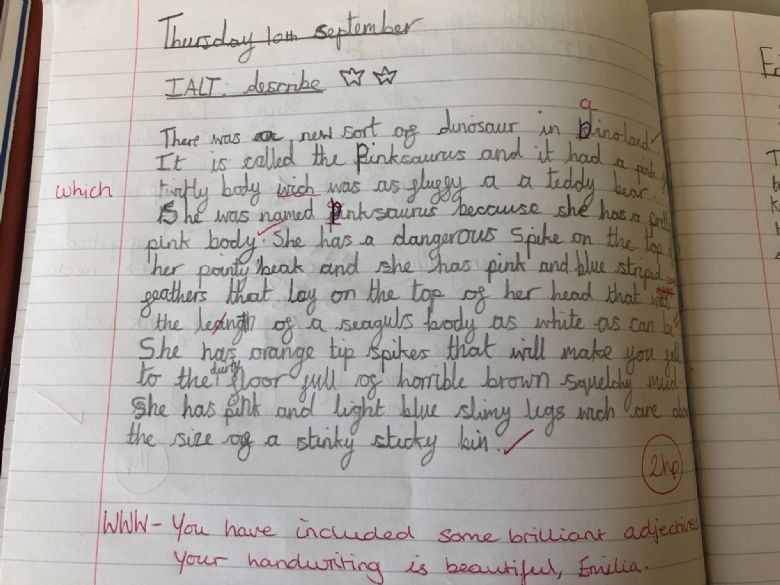 Thursday 10th September
IALT: describe
a
There was a new sort of dinosaur in Dinoland
It is called the Pinksaurus and it had a pink
which
body wich was as fluggy a a teddy bear.
She was named Pinksaurus because she has a
pink body. She has a dangerous spike on the top
her pointy beak and she has pink and blue striped
geathers that lay on the top of her head that
the length of a seaguls body as white as can be
She has orange tip spikes that will make you
durty
to the floor full of horrible brown squelchy mud
She has pink and light blue slimy legs wich are
the size of a stinky sticky bin.
2hp
WWW- You have included some brilliant adjectives
Your handwriting is beautiful, Emilia.